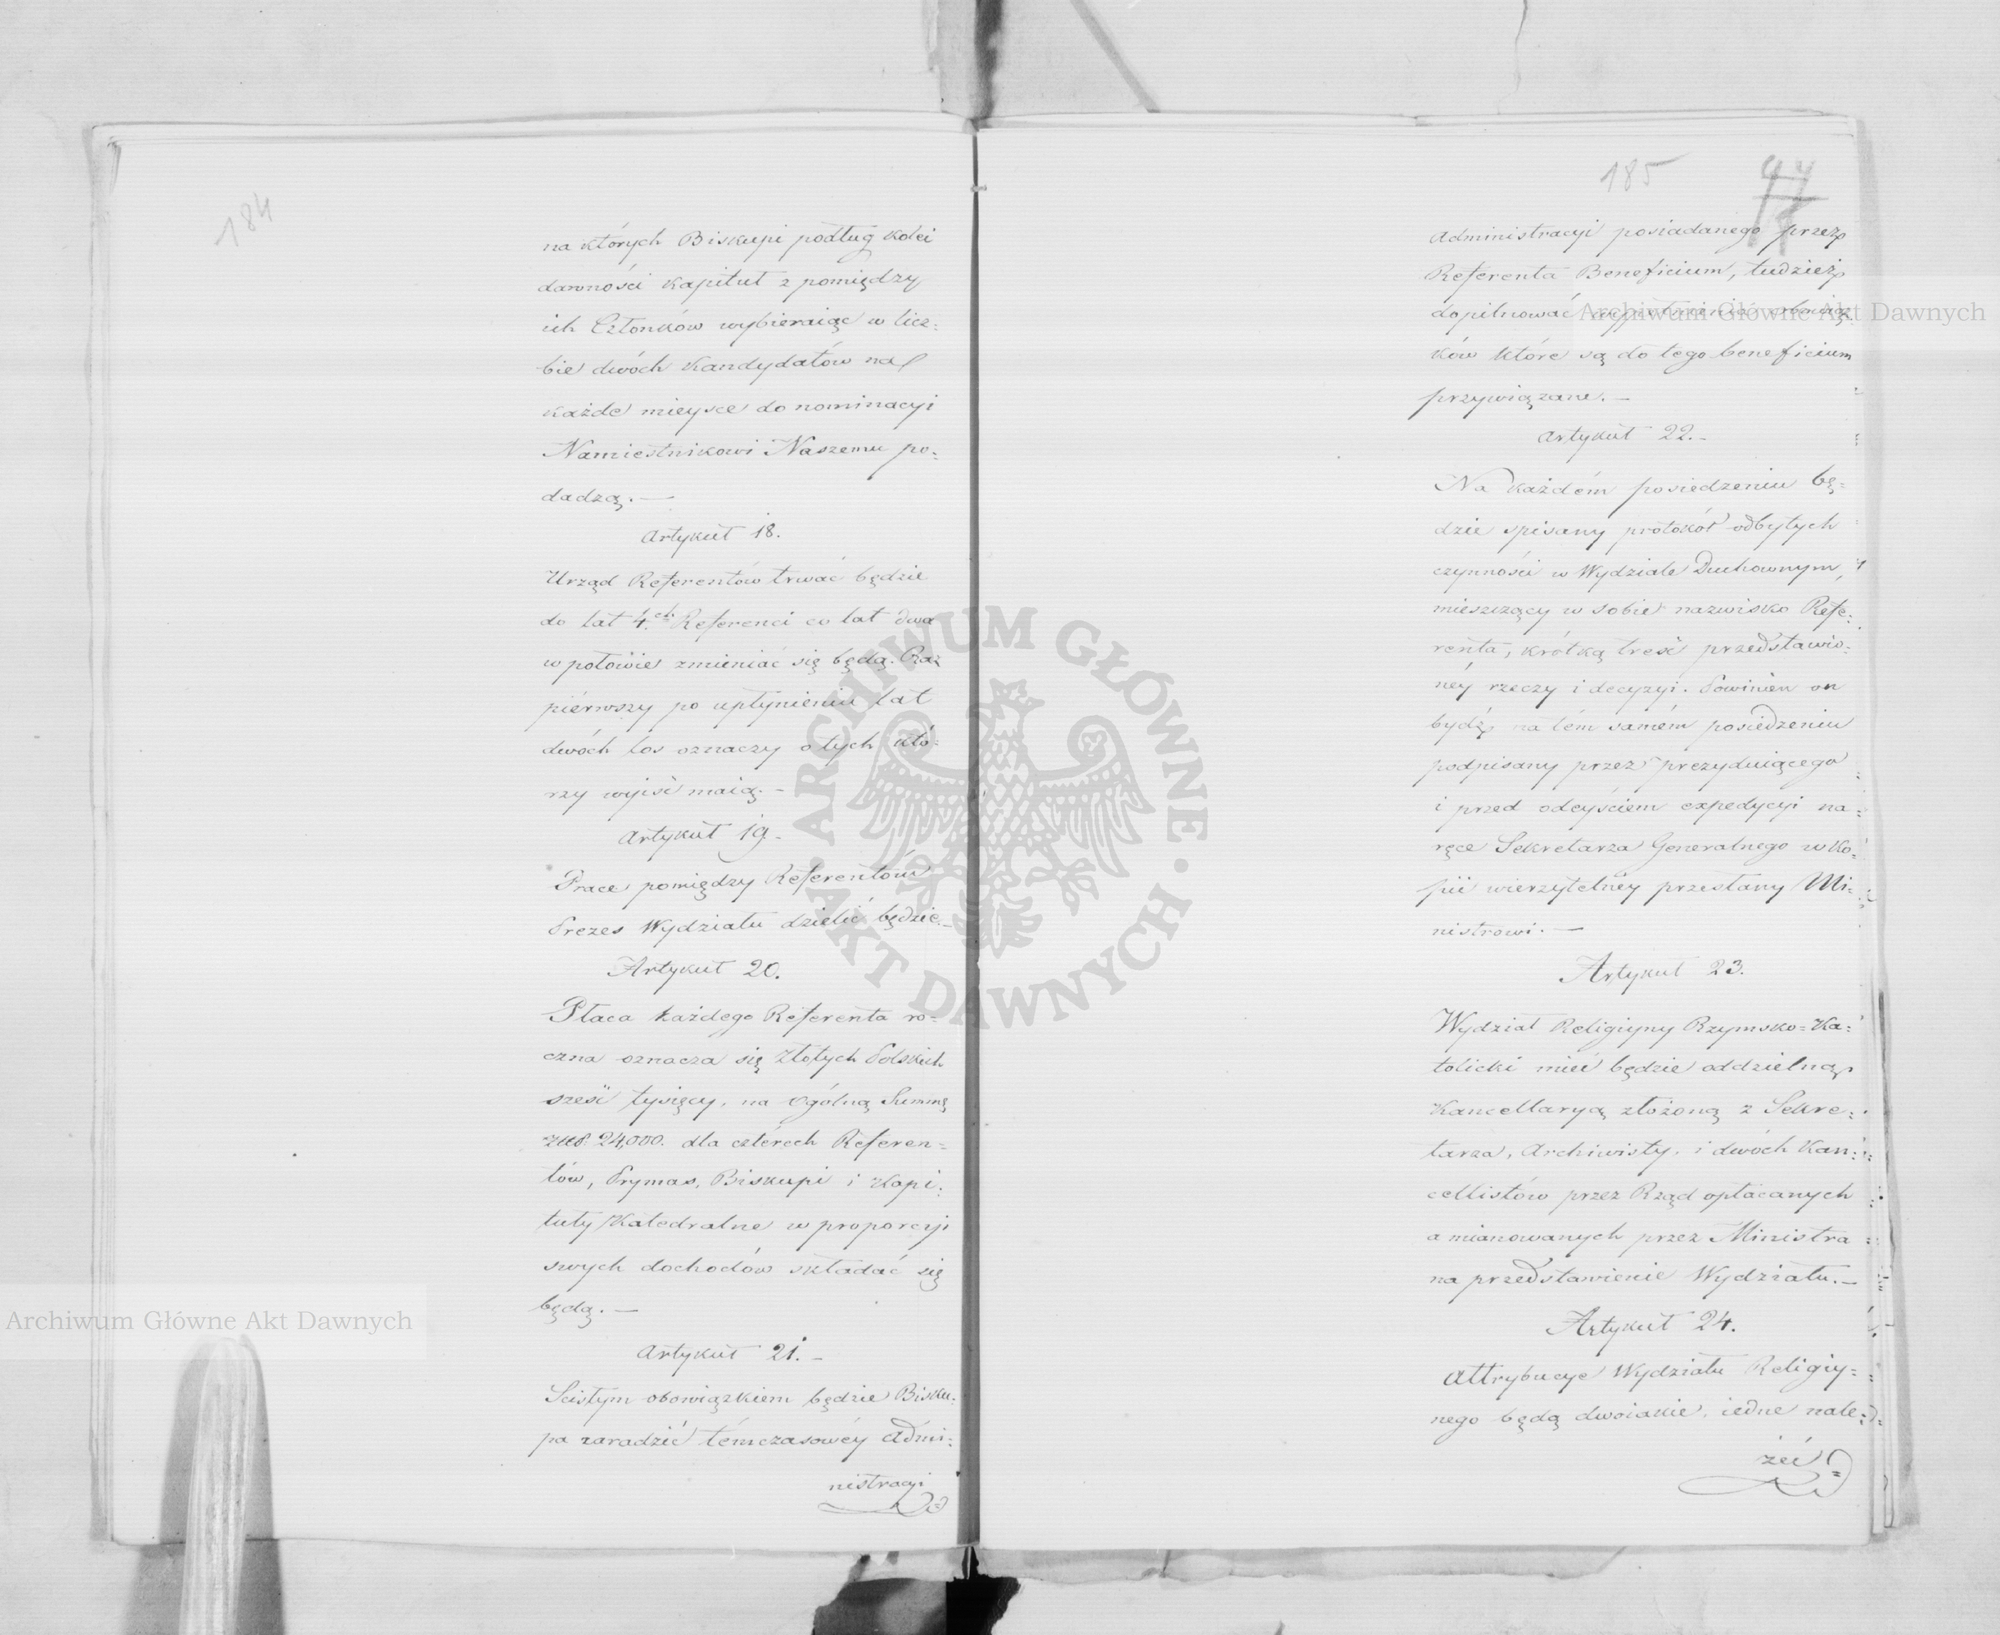 184
na których Biskupi podług kolei
dawności Kapituł z pomiędzy
ich Członków wybieraiąc w licz=
bie dwóch Kandydatów na
każde mieysce do nominacyi
Namiestnikowi Naszemu po=
dadzą. —
Artykuł 18.
Urząd Referentów trwać będzie
do lat 4.ch Referenci co lat dwa
w połowie zmieniać się będą. Raz
piérwszy po upłynieniu lat
dwóch los oznaczy o tych któ=
rzy wyjść maią. —
Artykuł 19.
Prace pomiędzy Referentów
Prezes Wydziału dzielić będzie. —
Artykuł 20.
Płaca każdego Referenta ro=
czna oznacza się Złotych Polskich
sześć tysięcy, na ogólną Summę
24,000. dla cztérech Referen=
tów, Prymas, Biskupi i Kapi=
tuły Katedralne w proporcyi
swych dochodów składać się
będą. —
Artykuł 21. —
Scisłym obowiązkiem będzie Bisku=
pa zaradzić témczasowéy Admi=
nistracyi
185
44
Administracyi posiadanego przez
Referenta Beneficium, tudzież
dopilnować wypełnienia obowiąz
ków które są do tego beneficium
przywiązane. —
Artykuł 22. —
Na każdém posiedzeniu bę=
dzie spisany protokół odbytych
czynności w Wydziale Duchownym,
mieszczący w sobie nazwisko Refe=
renta, krótką treść przedstawio=
néy rzeczy i decyzyi. Powinien on
bydź na tém samém posiedzeniu
podpisany przez prezyduiącego
i przed odeyściem expedycyi na
ręce Sekretarza Generalnego w Ko=
pii wierzytelnéy przesłany Mi=
nistrowi. —
Artykuł 23.
Wydział Religiyny Rzymsko=Ka=
tolicki mieć będzie oddzielną
Kancellaryą złożoną z Sekre=
tarza, Archiwisty, i dwóch Kan=
cellistów przez Rząd opłacanych
a mianowanych przez Ministra
na przedstawienie Wydziału. —
Artykuł 24.
Attrybucye Wydziału Religiy=
nego będą dwoiakie, iedne nale=
żeć
Archiwum Główne Akt Dawnych
ARCHIWUM GŁÓWNE · AKT DAWNYCH ·
Archiwum Główne Akt Dawnych